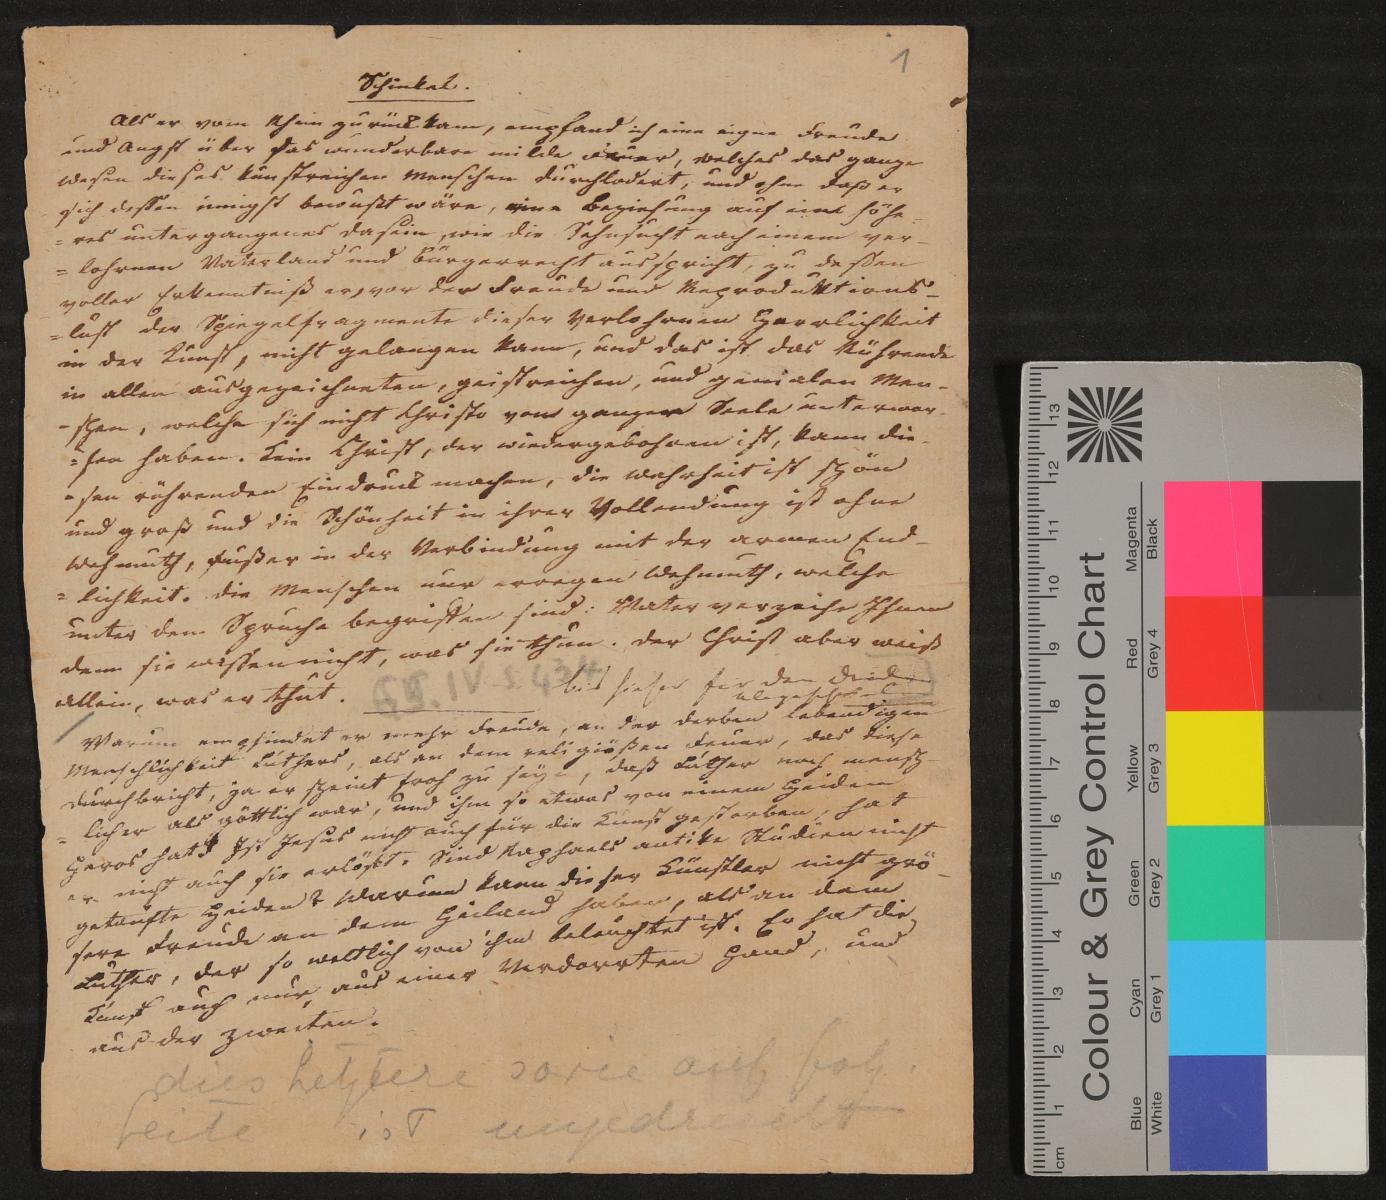 1
Schinkel.
Als er vom Rhein zurück kam, empfand ich eine eigne Freude
und Angst über das wunderbare milde Feuer, welches das ganze
Wesen dieses kunstreichen Menschen durchlodert, und ohne daß er
sich dessen innigst bewußt wäre, eine Beziehung auf ein höhe-
=res untergangenes Dasein, wie die Sehnsucht nach einem ver-
=lohrnen Vaterland und Bürgerrecht ausspricht, zu dessen
voller Erkenntniß er, vor der Freude und Reproduktions-
=lust der Spiegelfragmente dieser Verlohrnen Herrlichkeit
in der Kunst, nicht gelangen kann, und das ist das Rührende
in allen ausgezeichneten, geistreichen, und genialen Men-
-schen, welche sich nicht Christo von ganzer Seele unterwor-
=fen haben. Kein Christ, der wiedergebohren ist, kann die-
=sen rührenden Eindruck machen, die Wahrheit ist schön
und groß und die Schönheit in ihrer Vollendung ist ohne
Wehmuth, außer in der Verbindung mit der armen End-
=lichkeit. Die Menschen nur erregen Wehmuth, welche
unter dem Spruche begriffen sind: Vater verzeihe Ihnen
denn sie wissen nicht, was sie thun. Der Christ aber weiß
allein, was er thut.
GB. IV S. 434
bis hieher für den Druck
abgeschr
Warum empfindet er mehr Freude, an der derben lebendigen
Menschlichkeit Luthers, als an dem religiößen Feuer, das diese
durchbricht, ja er scheint froh zu seyn, daß Luther noch mensch-
=licher als göttlich war, und ihm so etwas von einem Heiden
Heros hat? Ist Jesus nicht auch für die Kunst gestorben, hat
er nicht auch sie erlößt. Sind Raphaels antike Studien nicht
getaufte Heiden? Warum kann dieser Künstler nicht grö-
sere Freude an dem Heiland haben, als an dem
Luther, der so weltlich von ihm beleuchtet ist. Er hat die
Kunst auch nur, aus einer Verdorrten Hand, und
aus der zweiten.
dies letztere sowie auf folg.
Seite ist ungedruckt
Colour & Grey Control Chart
Blue Cyan Green Yellow Red Magenta
White Grey 1 Grey 2 Grey 3 Grey 4 Black
cm 1 2 3 4 5 6 7 8 9 10 11 12 13